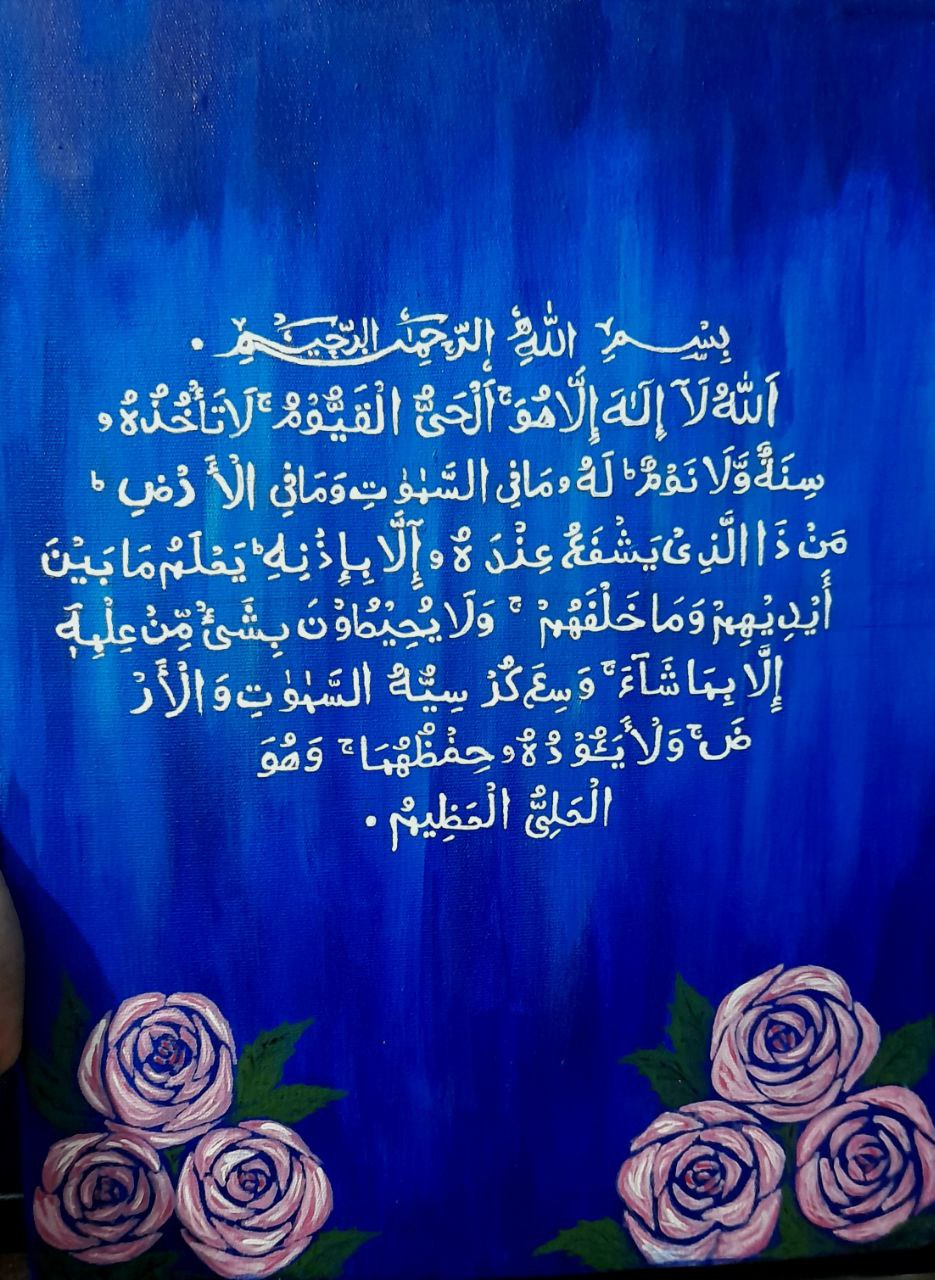 بِسْمِ اللّٰهِ الرَّحْمٰنِ الرَّحِيْمِ .
اَللّٰهُ لَآ إِلٰهَ إِلَّا هُوَ ۚ اَلْحَيُّ الْقَيُّوْمُ ۚ لَا تَأْخُذُهٗ
سِنَةٌ وَّلَا نَوْمٌ ؕ لَهٗ مَا فِي السَّمٰوٰتِ وَمَا فِي الْأَ رْضِ ؕ
مَنْ ذَا الَّذِيْ يَشْفَعُ عِنْدَ هٗ إِلَّا بِإِذْنِهٖ ؕ يَعْلَمُ مَا بَيْنَ
أَيْدِيْهِمْ وَمَا خَلْفَهُمْ ۚ وَلَا يُحِيْطُوْنَ بِشَيْءٍ مِّنْ عِلْمِهٖٓ
إِلَّا بِمَا شَآءَ ۚ وَسِعَ كُرْ سِيُّهُ السَّمٰوٰتِ وَالْأَرْ
ضَ ۚ وَلَا يَئُوْدُهٗ حِفْظُهُمَا ۚ وَهُوَ
الْعَلِيُّ الْعَظِيْمُ .